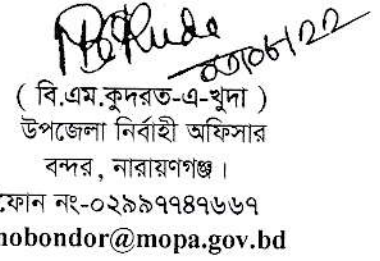 ( বি.এম.কুদরত-এ-খুদা )
উপজেলা নির্বাহী অফিসার
বন্দর, নারায়ণগঞ্জ।
ফোন নং-০২৯৯৭৭৪৭৬৬৭
nobondor@mopa.gov.bd